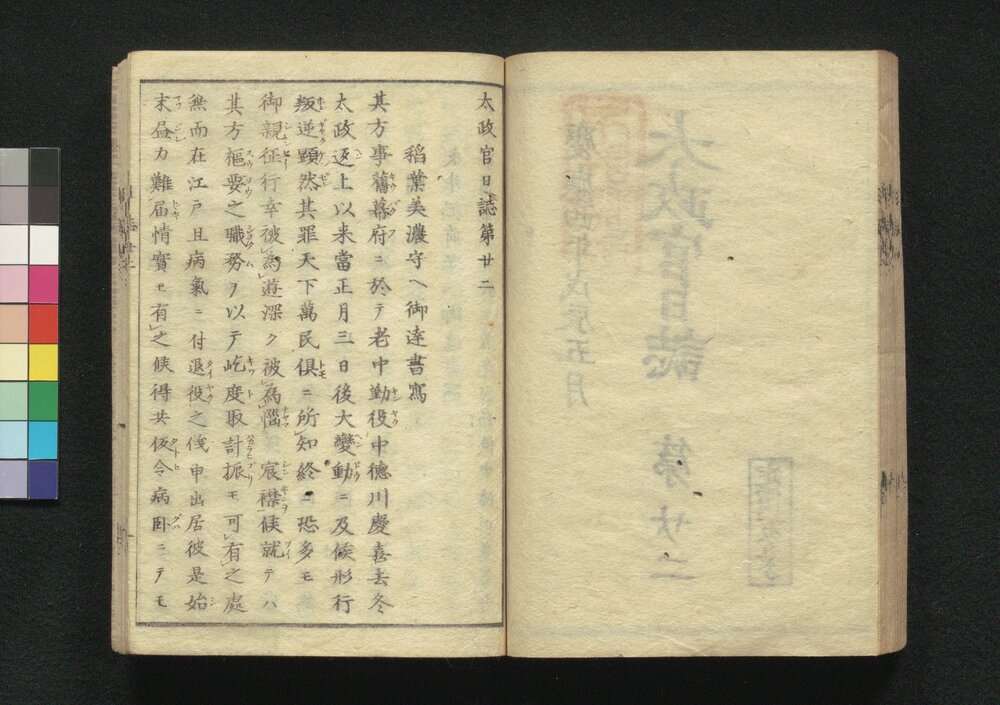 太政官日誌第廿二
稻葉美濃守ヘ御達書寫
其方事舊幕府ニ於テ老中勤役中德川慶喜去冬
太政返上以来當正月三日後大變動ニ及候形行
叛逆顕然其罪天下萬民俱ニ所知終ニ恐多モ
御親征行幸被為遊深ク被為惱宸襟候就テハ
其方樞要之職務ヲ以テ屹度取計振モ可有之處
無而在江戸且病氣ニ付退役之儀申出居彼是始
末益力難届情實モ有之候得共仮令病卧ニテモ
太政官日誌 第廿二
慶應四年戊辰五月